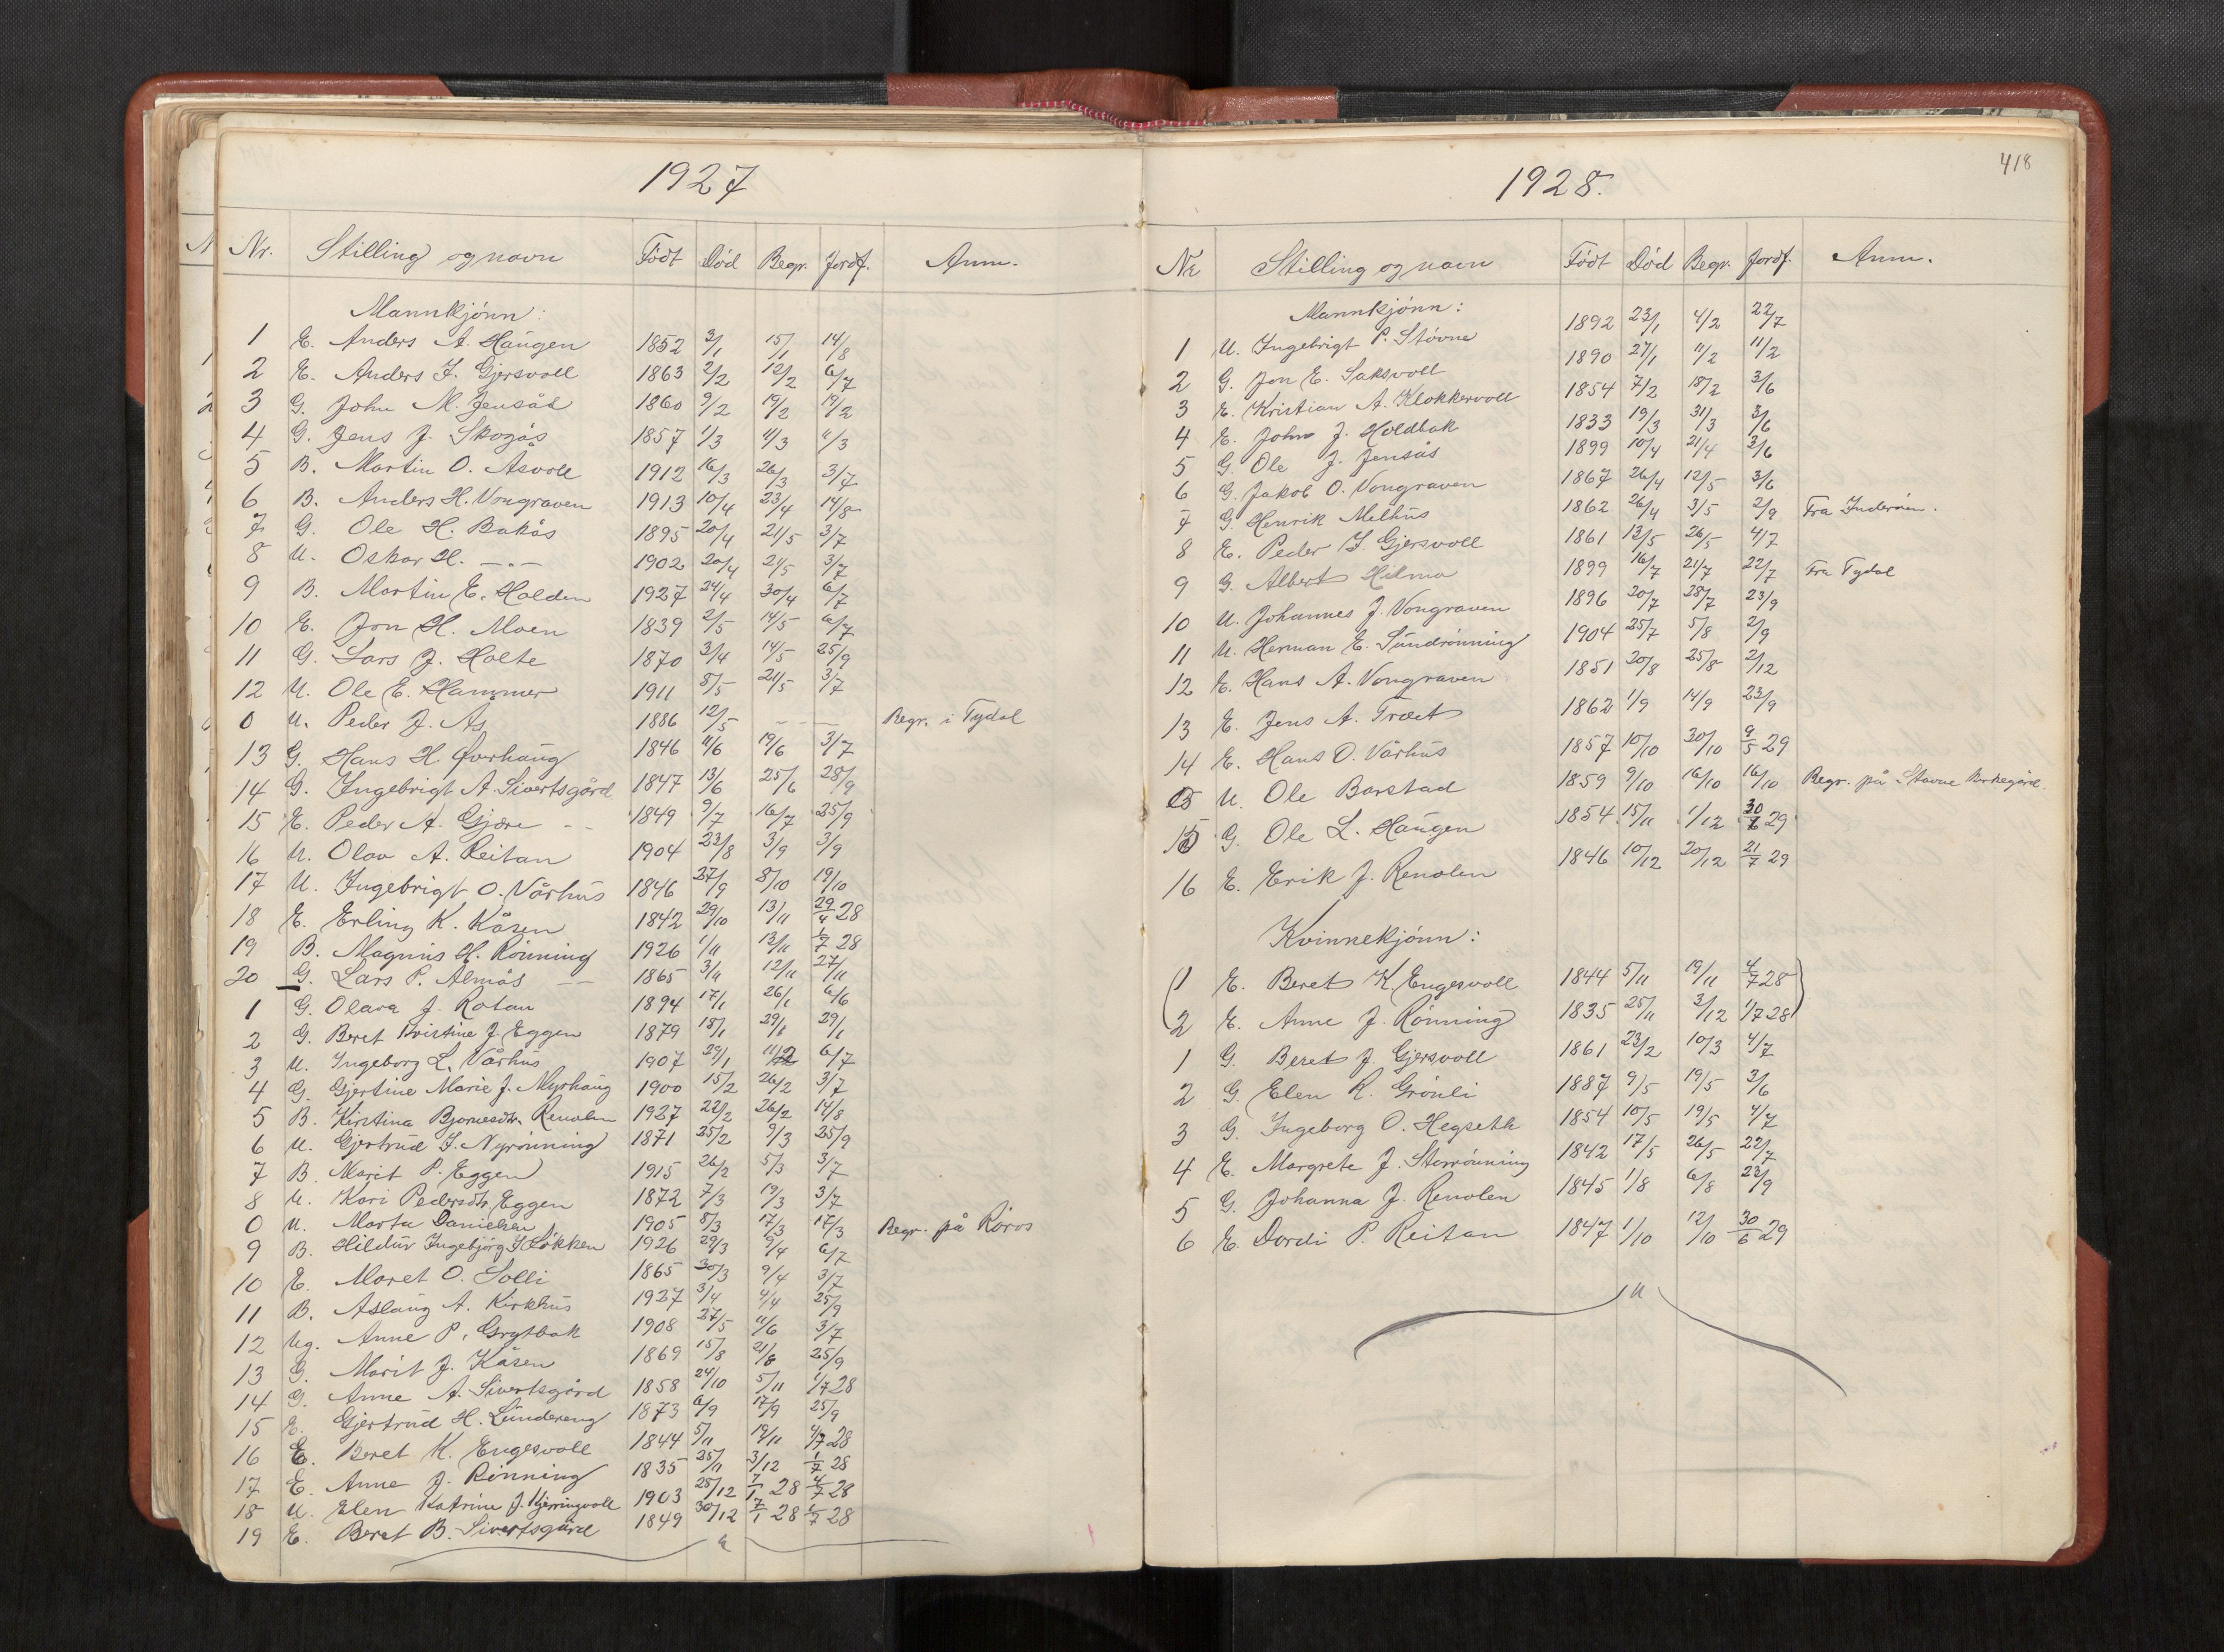 1927
Nr. Stilling og navn Födt Död Begr. Jordf. Anm.
Mannkjönn:
1 E. Anders A. Haugen 1852 3/1 15/1 14/8
2 E. Anders J. Gjersvoll 1863 2/2 12/2 6/7
3 G. John M. Jensås 1860 9/2 19/2 19/2
4 G. Jens J. Skogås 1857 1/3 11/3 11/3
5 B. Martin O. Åsvoll 1912 16/3 26/3 3/7
6 B. Anders H. Vongraven 1913 10/4 23/4 14/8
7 G. Ole H. Bakås 1895 20/4 21/5 3/7
8 U. Oskar H. -"- 1902 20/4 21/5 3/7
9 B. Martin E. Holden 1927 24/4 30/4 6/7
10 E. Jon H. Moen 1839 2/5 14/5 6/7
11 G. Lars J. Holte 1870 3/4 14/5 25/9
12 U. Ole E. Hammer 1911 8/5 21/5 3/7
0 U. Peder J. Ås 1886 12/5 - - - Begr. i Tydal
13 G. Hans H. Överhaug 1846 11/6 19/6 3/7
14 G. Ingebrigt A. Sivertsgård 1847 13/6 25/6 28/9
15 E. Peder A. Gjære 1849 9/7 16/7 25/9
16 U. Olav A. Reitan 1904 23/8 3/9 3/9
17 U. Ingebrigt O. Vårhus 1846 27/9 8/10 19/10
18 E. Erling K. Kåsen 1842 29/10 13/11 29/4 28
19 B. Magnus H. Rönning 1926 1/11 12/11 1/7 28
20 G. Lars P. Almås 1865 3/11 12/11 27/11
1 G. Olava J. Rotan 1894 17/1 26/1 6/6
2 G. Beret Kristine J. Eggen 1879 18/1 29/1 29/1
3 U. Ingeborg L. Vårhus 1907 29/1 11/2 6/7
4 G. Gjertine Marie J. Myrhaug 1900 15/2 26/2 3/7
5 B. Kirstina Bjornesdtr. Renolen 1927 22/2 26/2 14/8
6 U. Gjertrud J. Nyrönning 1871 25/2 9/3 25/9
7 B. Marit P. Eggen 1915 26/2 5/3 3/7
8 U. Kari Pedersdtr. Eggen 1872 7/3 19/3 3/7
0 U. Marta Danielsen 1905 8/3 17/3 17/3 Begr. på Röros
9 B. Hildur Ingebjörg J. Lökken 1926 29/3 9/4 6/7
10 E. Maret O. Solli 1865 30/3 9/4 3/7
11 B. Aslaug A. Kirkhus 1927 3/4 4/4 25/9
12 Ug. Anne P. Grytbak 1908 27/5 11/6 3/7
13 G. Marit J. Kåsen 1869 15/8 21/8 25/9
14 G. Anne A. Sivertsgård 1858 24/10 5/11 1/7 28
15 E. Gjertrud H. Lundereng 1873 6/9 17/9 25/9
16 E. Beret K. Engesvoll 1844 5/11 19/11 4/7 28
17 E. Anne J. Rönning 1835 25/11 3/12 1/7 28
18 U. Elen Katrine J. Kjerringvoll 1903 25/12 7/1 28 4/7 28
19 E. Beret B. Sivertsgård 1849 30/12 7/1 28 1/7 28
418
1928.
Nr Stilling og navn Födt Död Begr. Jordf. Anm.
Mannkjönn:
1 U. Ingebrigt P. Stövne 1892 23/1 4/2 22/7
2 G. Jon E. Saksvoll 1890 27/1 11/2 11/2
3 E. Kristian A. Klokkervoll 1854 7/2 18/2 3/6
4 E. John J. Holdbak 1833 19/3 31/3 3/6
5 G. Ole J. Jensås 1899 10/4 21/4 3/6
6 G. Jakob O. Vongraven 1867 26/4 12/5 3/6
7 G. Henrik Melhus 1862 26/4 3/5 2/9 Fra Inderöien.
8 E. Peder J. Gjersvoll 1861 13/5 26/5 4/7
9 G. Albert Hilmo 1899 16/7 21/7 22/7 Fra Tydal
10 U. Johannes J. Vongraven 1896 20/7 28/7 23/9
11 U. Herman E. Sundrönning 1904 25/7 5/8 2/9
12 E. Hans A. Vongraven 1851 20/8 25/8 2/12
13 E. Jens A. Træet 1862 1/9 14/9 23/9
14 E. Hans O. Vårhus 1857 10/10 30/10 9/5 29
0 U. Ole Borstad 1859 9/10 16/10 16/10 Begr. på Stavne kirkegård.
15 G. Ole L. Haugen 1854 15/11 1/12 30/6 29
16 E. Erik J. Renolen 1846 10/12 20/12 21/7 29
Kvinnekjönn:
(1 E. Beret K. Engesvoll 1844 5/11 19/11 4/7 28)
(2 E. Anne J. Rönning 1835 25/11 3/12 1/7 28)
1 G. Beret J. Gjersvoll 1861 23/2 10/3 4/7
2 G. Elen R. Grönli 1887 9/5 19/5 3/6
3 G. Ingeborg O. Hegseth 1854 10/5 19/5 4/7
4 E. Margrete J. Storrönning 1842 17/5 26/5 22/7
5 G. Johanna J. Renolen 1845 1/8 6/8 23/9
6 E. Dordi P. Reitan 1847 1/10 12/10 30/6 29